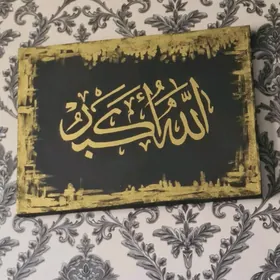 اللهُ أَكْبَرُ